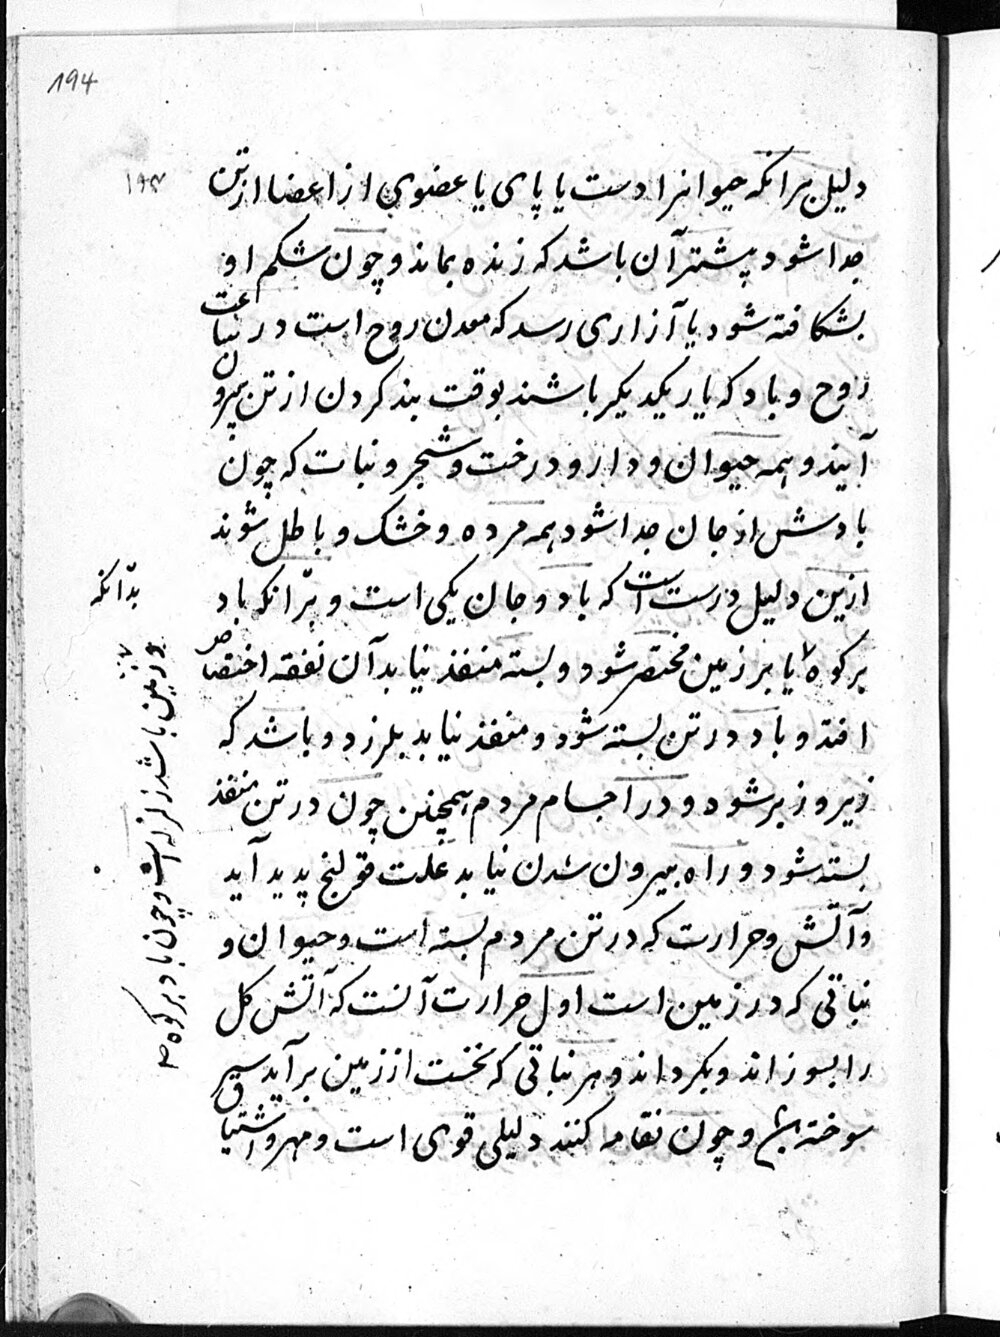 194
۱۹۴
دلیل برانکه حیوانرا دست یا پای یا عضوی از اعضا از تن
جدا شود پیشتر آن باشد که زنده بماند و چون شکم او
بشکافته شود یا آزاری رسد که معدن روح است در ساعت
روح و باد که یار یکدیگر باشند بوقت بند کردن از تن بیرون
آیند و همه حیوان و دار و درخت و شجر و نبات که چون
بادش از جان جدا شود همه مرده و خشک و باطل شوند
ازین دلیل درست است که باد و جان یکی است و برانکه باد
بر کوه یا بر زمین مختصر شود و بسته منفذ نیابد آن نفقه اختصاص
افتد و باد در تن بسته شود و منفذ نیابد بلرزد و باشد که
زیر و زبر شود و در اجسام مردم همچنین چون در تن منفذ
بسته شود و راه بیرون شدن نیابد علت قولنج پدید آید
و آتش و حرارت که در تن مردم بسته است و حیوان و
نباتی که در زمین است اول حرارت آنست که آتش کل
را بسوزاند و بگرداند و هر نباتی که نخست از زمین برآید سر
سوخته و چون نقامه کنند دلیلی قوی است و مهر و اشتیاق
بدانکه
در زمین باشد زلزله است و چون باد بر کوه